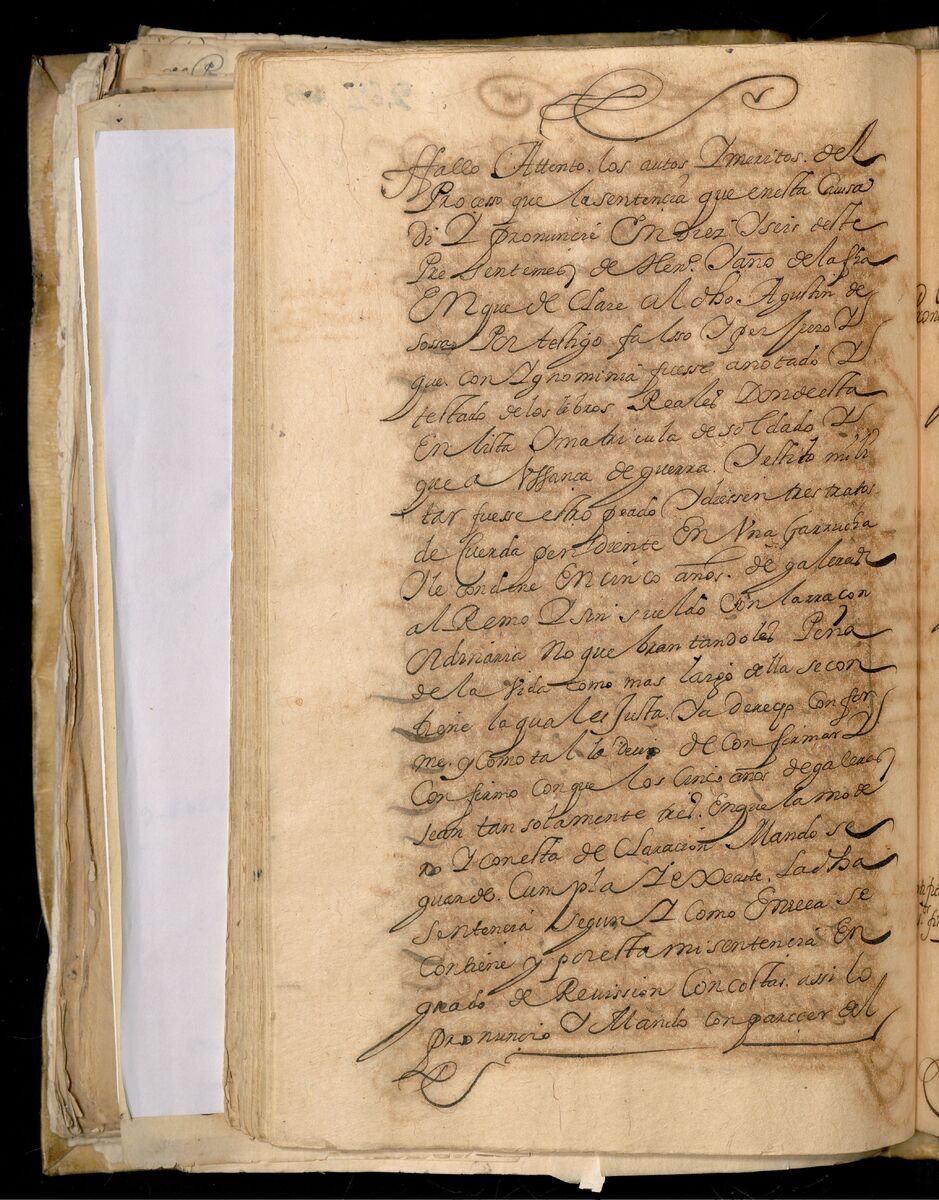 Fallo Attento los autos Y meritos del
Processo que la sentencia que en esta Causa
Di Y pronuncie En Diez Y seis deste
Pressente mes de Hen.º Y año de la fha
En que de Clare al dho Agustin de
Sossa Por testigo falsso Y per juro Y
que con Ygnominia fuesse anotado Y
testado de los libros Reales Donde esta
En lista Y matricula de soldado Y
que a Vssanca de guerra Y estilo mili
tar fuesse estro peado Y diessen tres tratos
de Cuerda pendiente En Vna garrucha
Y le condene En cinco años de galeras
al Remo Y sin sueldo Con la rracon
Ordinaria No que bran tandoles Pena
de la Vida como mas largo della se con
tiene la qual es Justa Y a derecho confor
me y como tal la Devo de Confirmar Y
Confirmo con que los Cinco años de galeras
sean tan solamente tres En que la mode
ro Y con esta de Claracion Mando se
guarde Cumpla Y execute La dha
sentencia segun Y como En ella se
Contiene y por esta mi sentencia En
grado de Revission Con costas assi lo
pronuncio Y Mando con parecer del